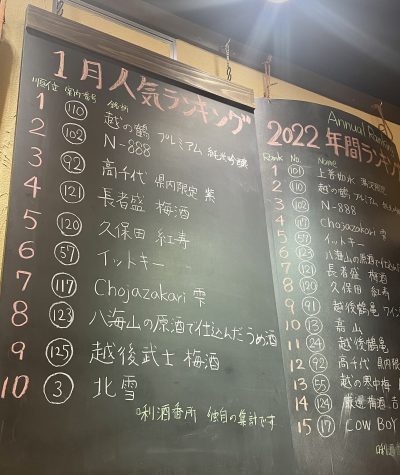 1月人気ランキング
順位 案内番号 銘柄
1 110 越の鶴 プレミアム 純米吟醸
2 102 N-888
3 92 高千代 県内限定 紫
4 121 長者盛 梅酒
5 120 久保田 紅寿
6 57 イットキー
7 117 Chojazakari 雫
8 123 八海山の原酒で仕込んだうめ酒
9 125 越後武士 梅酒
10 3 北雪
唎酒番所 独自の集計です
Annual
2022年間ラン
Rank No. Name
1 101 上善如水
2 110 越の鶴 プレミアム
3 102 N-888
4 117 Chojazakari 雫
5 57 イットキー
6 123 八海山の原酒で仕込
7 121 長者盛 梅酒
8 120 久保田 紅寿
9 91 越後鶴亀 ワイン
10 13 高山
11 24 越後鶴亀
12 92 高千代 県内限
13 55 越の寒中梅
14 124
15 17 COW BOY
唎酒